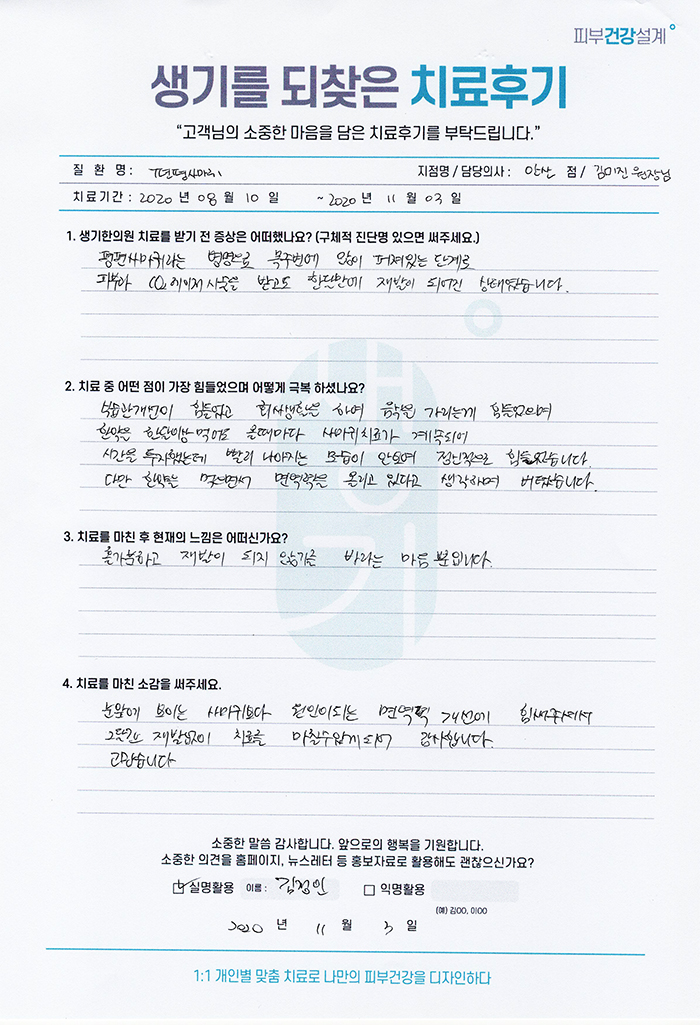 피부건강설계
생기를 되찾은 치료후기
“고객님의 소중한 마음을 담은 치료후기를 부탁드립니다.”
질 환 명 : 편평사마귀 지점명 / 담당의사 : 안산 점 / 김미진 원장님
치료기간 : 2020 년 08 월 10 일 ~ 2020 년 11 월 03 일
1. 생기한의원 치료를 받기 전 증상은 어떠했나요? (구체적 진단명 있으면 써주세요.)
평편사마귀라는 병명으로 목주변에 많이 퍼져있는 단계로
피부과 CO2 레이저 시술을 받고도 한달만에 재발이 되어진 상태였습니다.
2. 치료 중 어떤 점이 가장 힘들었으며 어떻게 극복 하셨나요?
식습관개선이 힘들었고 회사생활을 하며 음식을 가리는게 힘들었으며
한약은 한달이상 먹어도 올때마다 사마귀치료가 계속되어
시간을 투자했는데 빨리 나아지는 모습이 안보여 정신적으로 힘들었습니다.
다만 한약을 먹으면서 면역력을 올리고 있다고 생각하며 버텼습니다.
3. 치료를 마친 후 현재의 느낌은 어떠신가요?
홀가분하고 재발이 되지 않기를 바라는 마음 뿐입니다.
4. 치료를 마친 소감을 써주세요.
눈앞에 보이는 사마귀보다 원인이되는 면역력 개선에 힘써주셔서
재발없이 치료를 마칠수있게되어 감사합니다.
고맙습니다
생기
소중한 말씀 감사합니다. 앞으로의 행복을 기원합니다.
소중한 의견을 홈페이지, 뉴스레터 등 홍보자료로 활용해도 괜찮으신가요?
실명활용 이름 : 김정인 익명활용
(예) 김OO, 이OO
2020 년 11 월 3 일
1:1 개인별 맞춤 치료로 나만의 피부건강을 디자인하다